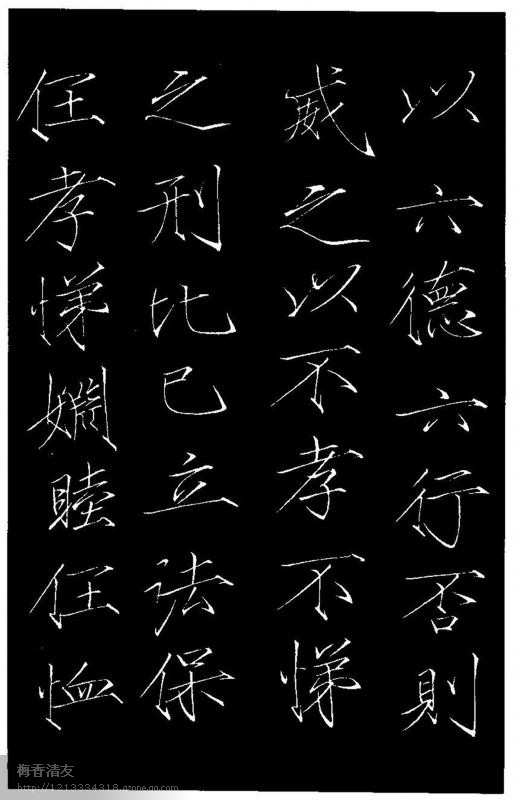 以六德六行否則
威之以不孝不悌
之刑比已立法保
任孝悌婣睦任恤
梅香清友
http://1213334318.qzone.qq.com